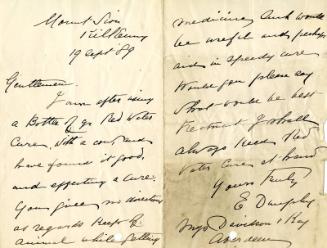 Mount Sion
Kilkenny
19 Sept 89
Gentlemen.
I am after using
a Bottle of yr Red Water
Cure, with a cow, and
have found it good,
and effecting a cure.
You give no directions
as regards keep of
animal while getting
medicine, and would
be useful and perhaps
aid in a speedy cure
Would you please say
what would be best
treatment. I shall
always keep Red
Water Cure at hand
Yours truly
E Dunphy
Davidson & Kay
Aberdeen